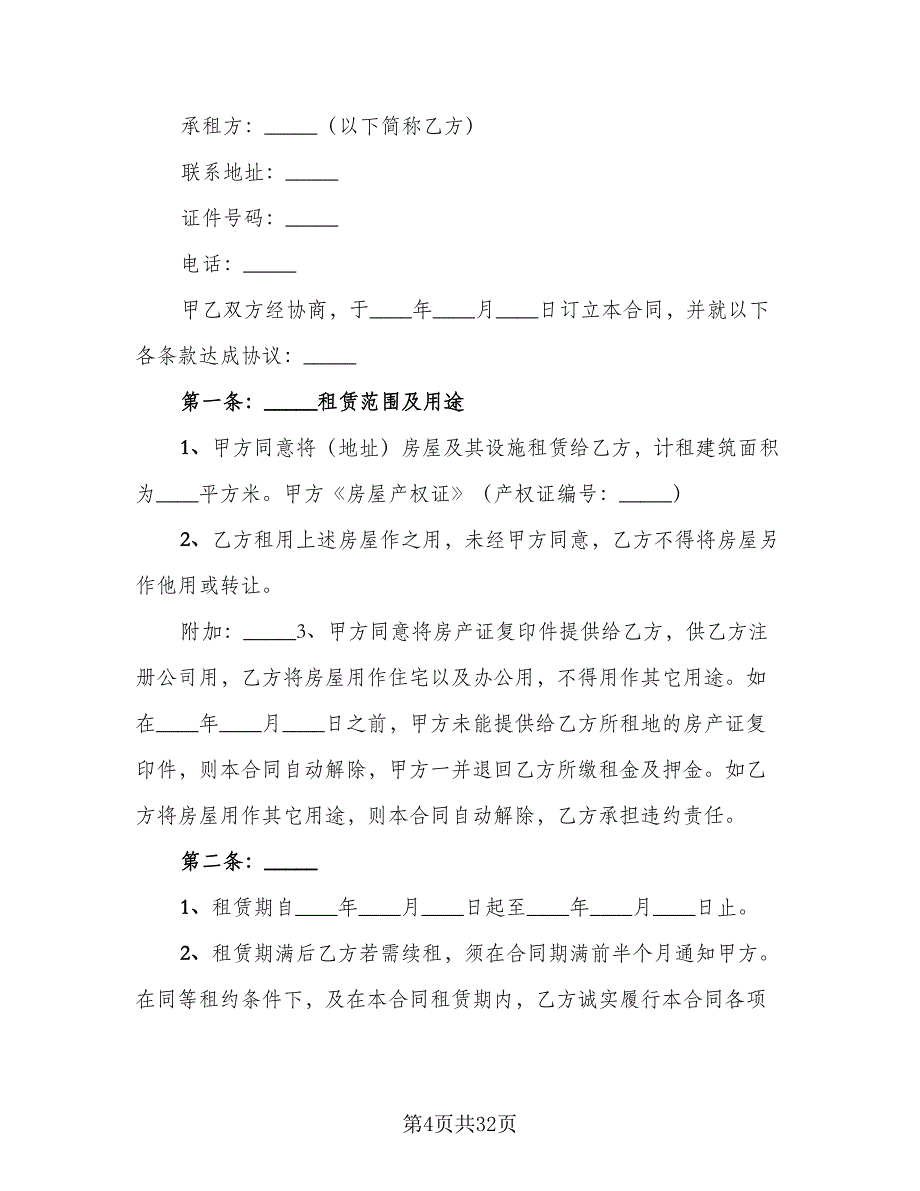 承租方：_____（以下简称乙方）
联系地址：_____
证件号码：_____
电话：_____
甲乙双方经协商，于____年____月____日订立本合同，并就以下
各条款达成协议：_____
第一条：_____租赁范围及用途
1、甲方同意将（地址）房屋及其设施租赁给乙方，计租建筑面积
为____平方米。甲方《房屋产权证》（产权证编号：_____）
2、乙方租用上述房屋作之用，未经甲方同意，乙方不得将房屋另
作他用或转让。
附加：_____3、甲方同意将房产证复印件提供给乙方，供乙方注
册公司用，乙方将房屋用作住宅以及办公用，不得用作其它用途。如
在____年____月____日之前，甲方未能提供给乙方所租地的房产证复
印件，则本合同自动解除，甲方一并退回乙方所缴租金及押金。如乙
方将房屋用作其它用途，则本合同自动解除，乙方承担违约责任。
第二条：_____
1、租赁期自____年____月____日起至____年____月____日止。
2、租赁期满后乙方若需续租，须在合同期满前半个月通知甲方。
在同等租约条件下，及在本合同租赁期内，乙方诚实履行本合同各项
第4页共32页